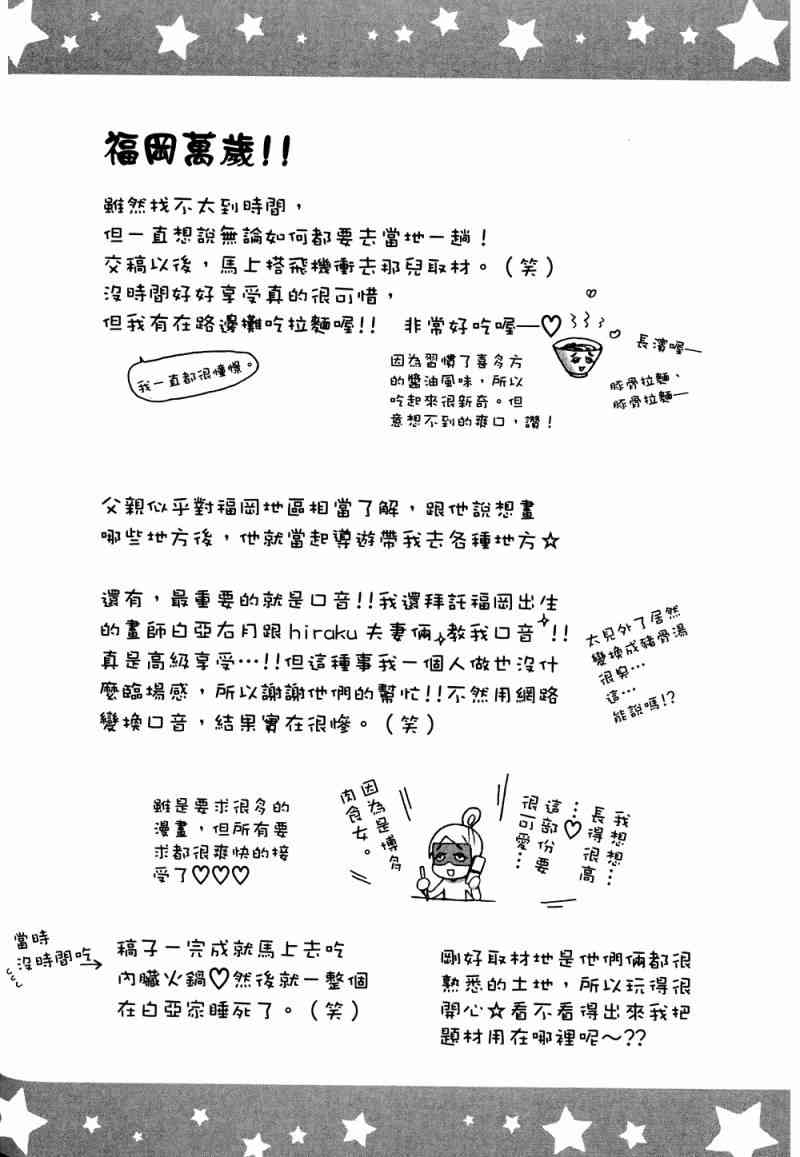 福岡萬歲!!
雖然找不太到時間，
但一直想說無論如何都要去當地一趟！
交稿以後，馬上搭飛機衝去那兒取材。（笑）
沒時間好好享受真的很可惜，
但我有在路邊攤吃拉麵喔!!　非常好吃喔—♡
我一直都很憧憬。
因為習慣了喜多方
的醬油風味，所以
吃起來很新奇。但
意想不到的爽口，讚！
長濱喔—
豚骨拉麵、
豚骨拉麵—
父親似乎對福岡地區相當了解，跟他說想畫
哪些地方後，他就當起導遊帶我去各種地方☆
還有，最重要的就是口音!!我還拜託福岡出生
的畫師白亞右月跟hiraku夫妻倆教我口音!!
真是高級享受…!!但這種事我一個人做也沒什
麼臨場感，所以謝謝他們的幫忙!!不然用網路
變換口音，結果實在很慘。（笑）
太見外了居然
變換成豬骨湯
很臭…
這…
能說嗎!?
雖是要求很多的
漫畫，但所有要
求都很爽快的接
受了♡♡♡
我想想…
長得很高
…♡
這部份要
很可愛…
因為是博多
肉食女。
當時
沒時間吃→
稿子一完成就馬上去吃
內臟火鍋♡然後就一整個
在白亞家睡死了。（笑）
剛好取材地是他們倆都很
熟悉的土地，所以玩得很
開心☆看不看得出來我把
題材用在哪裡呢～??